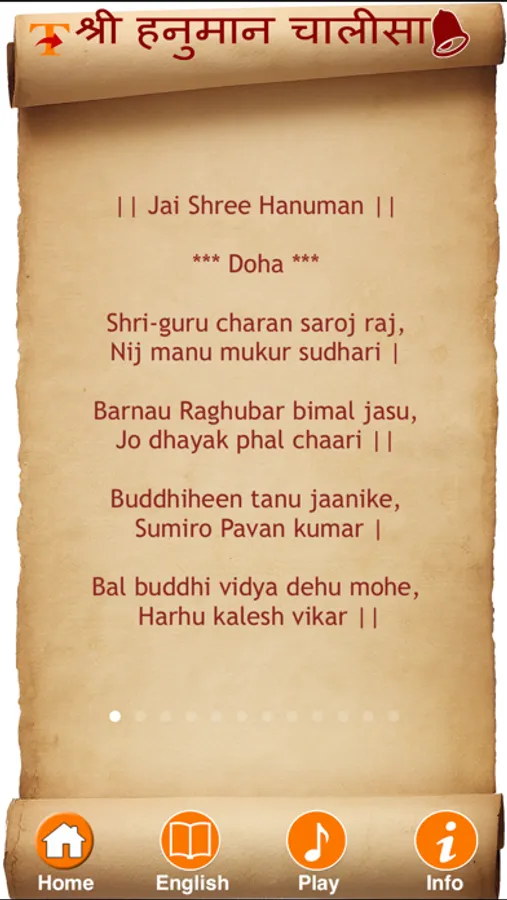 श्री हनुमान चालीसा
|| Jai Shree Hanuman ||
*** Doha ***
Shri-guru charan saroj raj,
Nij manu mukur sudhari |
Barnau Raghubar bimal jasu,
Jo dhayak phal chaari ||
Buddhiheen tanu jaanike,
Sumiro Pavan kumar |
Bal buddhi vidya dehu mohe,
Harhu kalesh vikar ||
Home English Play Info